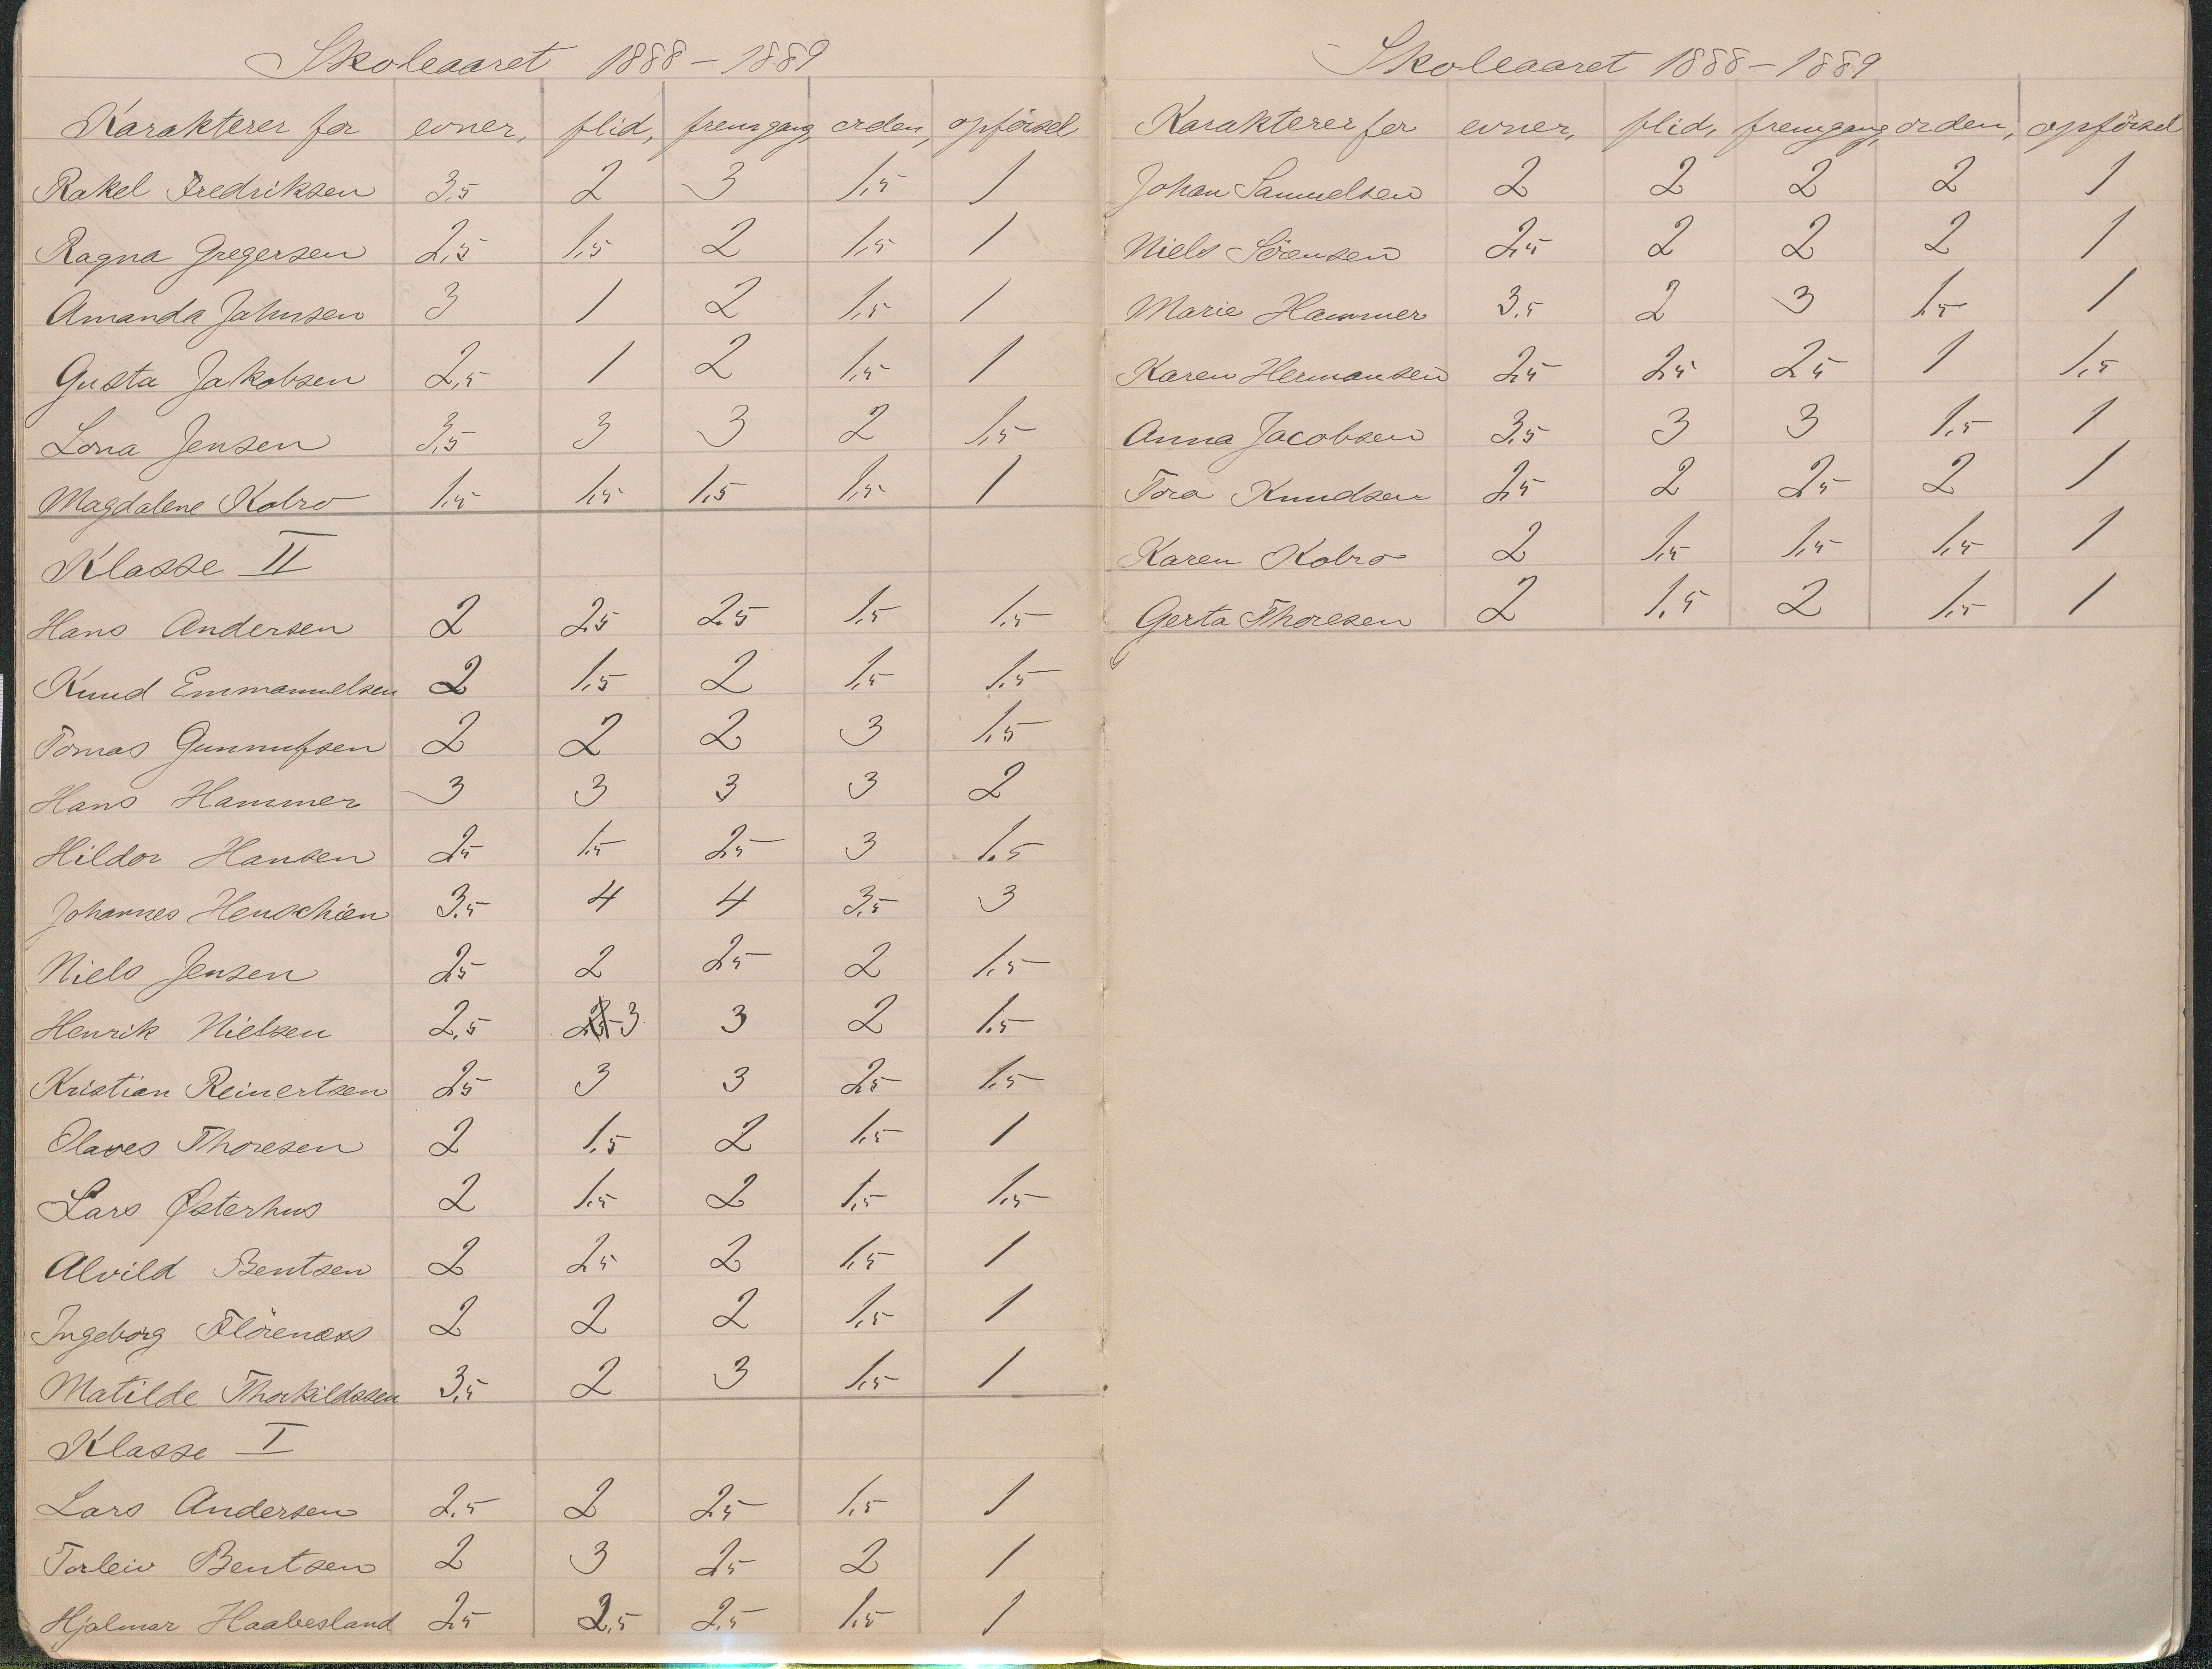 Skoleaaret 1888-1889
Karakterer for evner, flid, fremgang, orden, opförsel
Rakel Fredriksen 3,5 2 3 1,5 1
Ragna Gregersen 2,5 1,5 2 1,5 1
Amanda Jahnsen 3 1 2 1,5 1
Gusta Jakobsen 2,5 1 2 1,5 1
Lona Jensen 3,5 3 3 2 1,5
Magdalene Kobro 1,5 1,5 1,5 1,5 1
Klasse II
Hans Andersen 2 2,5 2,5 1,5 1,5
Knud Emmanuelsen 2 1,5 2 1,5 1,5
Tomas Gunnufsen 2 2 2 3 1,5
Hans Hammer 3 3 3 3 2
Hildor Hansen 2,5 1,5 2,5 3 1,5
Johannes Henschien 3,5 4 4 3,5 3
Niels Jensen 2,5 2 2,5 2 1,5
Henrik Nielsen 2,5 3 3 2 1,5
Kristian Reinertsen 2,5 3 3 2,5 1,5
Olaves Thoresen 2 1,5 2 1,5 1
Lars Østerhus 2 1,5 2 1,5 1,5
Alvild Bentsen 2 2,5 2 1,5 1
Ingeborg Flörenæss 2 2 2 1,5 1
Matilde Thorkildssen 3,5 2 3 1,5 1
Klasse I
Lars Andersen 2,5 2 2,5 1,5 1
Torleiv Bentsen 2 3 2,5 2 1
Hjalmar Haabesland 2,5 2,5 2,5 1,5 1
Skoleaaret 1888-1889
Karakterer for evner, flid, fremgang, orden, opförsel
Johan Samuelsen 2 2 2 2 1
Niels Sörensen 2,5 2 2 2 1
Marie Hammer 3,5 2 3 1,5 1
Karen Hermansen 2,5 2,5 2,5 1 1,5
Anna Jacobsen 3,5 3 3 1,5 1
Tora Knudsen 2,5 2 2,5 2 1
Karen Kobro 2 1,5 1,5 1,5 1
Gerta Thoresen 2 1,5 2 1,5 1